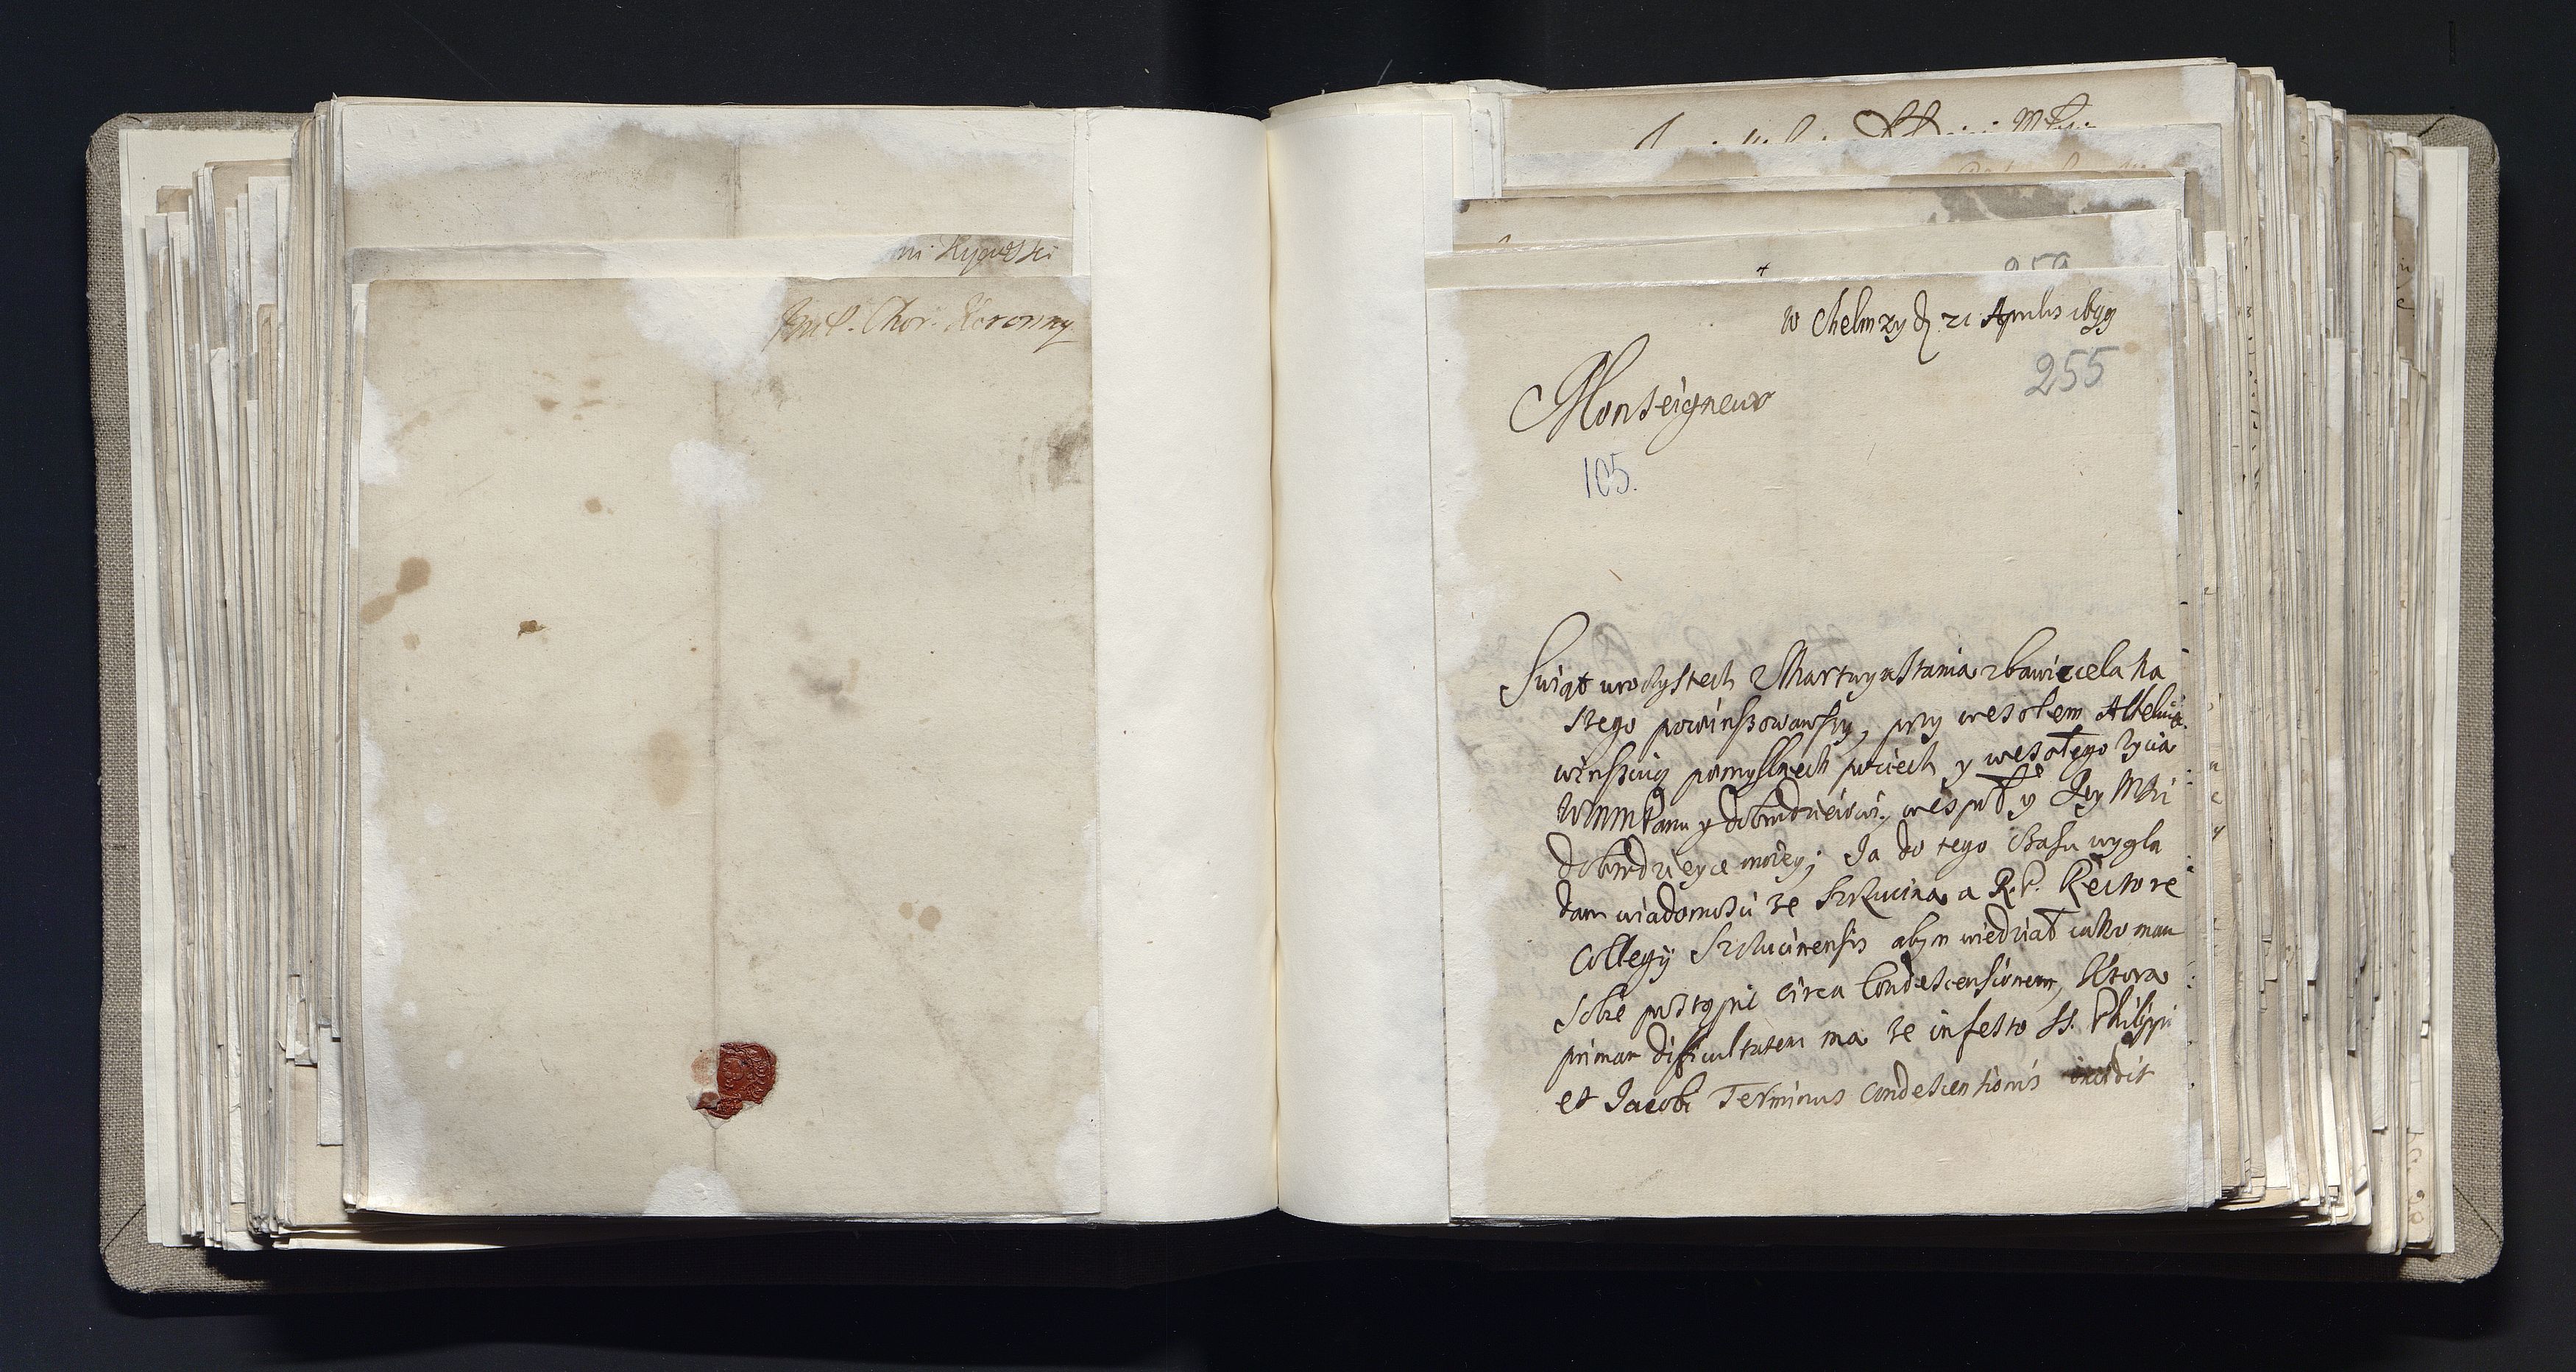 ni Kijowski
Jmć P. Chor: Koronny
259
w Chelmzy d. 21 Aprilis 1699
255
Monseigneur
105.
Swiąt uroczystech Martwychstania zbawiciela na
szego powinszowawszy, przy wesołem Alleluia
winszuię pomyslnech pociech y wesołego życia
WMMPanu y dobrodzieiowi, wespoł y Jey Mści
dobrodzieyce moiey; Ja do tego czasu wygla
dam wiadomosci ze Szczucina a R. P. Rectore
Collegij Szczucinensis abym wiedział iako mam
sobie postąpić circa Condescensionem, ktora
primam dificultatem ma ze in festo SS. Philippi
et Jacobi Terminus condescentionis incidit